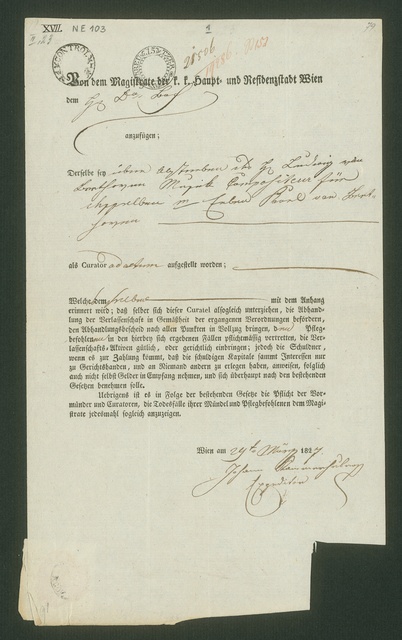 XVII. N E 103
II, 23
1
Von dem Magistrate der k. k. Haupt- und Residenzstadt Wien
dem H. Dr. Bach
anzufügen;
Derselbe sey über Absterben des H. Ludwig van
Beethoven Musik Compositeur für
den Erben Karl van Beet-
hoven
als Curator ad actum aufgestellt worden;
Welches demselben mit dem Anhang
erinnert wird; daß selber sich dieser Curatel alsogleich unterziehen, die Abhand-
lung der Verlassenschaft in Gemäßheit der ergangenen Verordnungen befördern,
den Abhandlungsbescheid nach allen Punkten in Vollzug bringen, den Pfleg-
befohlenen in den hierbey sich ergebenen Fällen pflichtmässig vertretten, die Ver-
lassenschafts-Aktiven gütlich, oder gerichtlich einbringen; jedoch die Schuldner,
wenn es zur Zahlung kömmt, daß sie die schuldigen Kapitale sammt Interessen nur
zu Gerichtshanden, und an Niemand andern zu erlegen haben, anweisen, folglich
auch nicht selbst Gelder in Empfang nehmen, und sich überhaupt nach den bestehenden
Gesetzen benehmen solle.
Uebrigens ist es in Folge der bestehenden Gesetze die Pflicht der Vor-
münder und Curatoren, die Todesfälle ihrer Mündel und Pflegbefohlenen dem Magi-
strate jedesmahl sogleich anzuzeigen.
Wien am 29t. März 1827
Johann
Expeditor